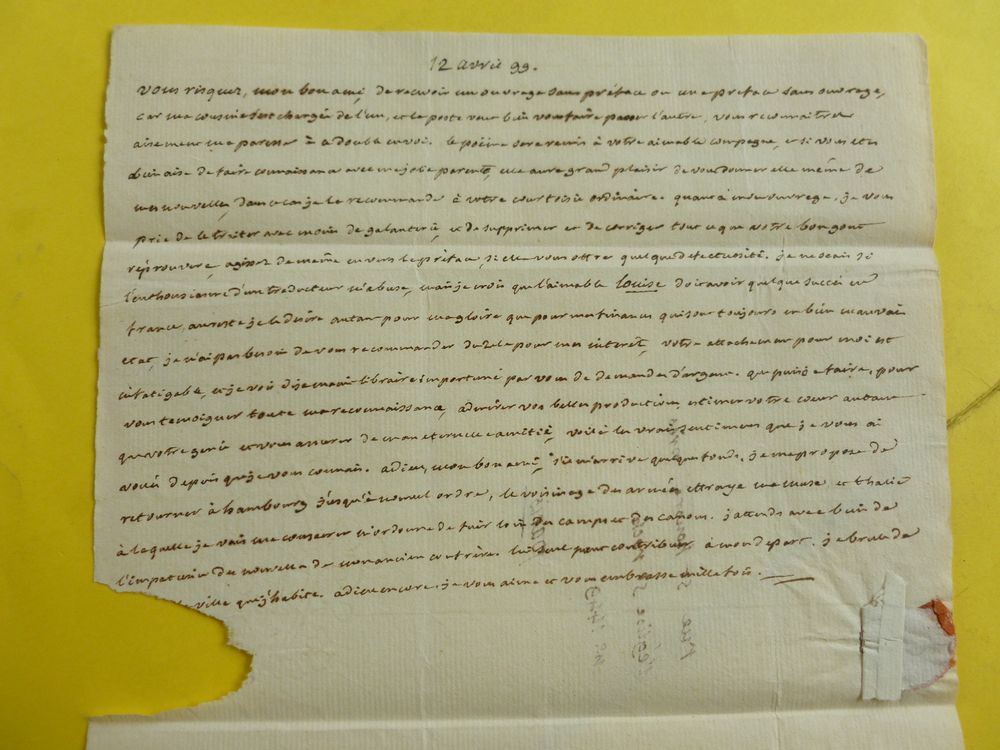 12 avril 99.
vous risquez, mon bon ami, de recevoir un ouvrage sans préface ou une préface sans ouvrage,
car ma cousine s'est chargée de l'un, et la poste veut bien vous faire passer l'autre, vous reconnaitrez
aisement ma paresse à ce double envoi. le poëme sera remis à votre aimable compagne, et si vous etes
bien aise de faire connaissance avec ma jolie parente, elle aura grand plaisir de vous donner elle même de
mes nouvelles, dans ce cas je la recommande à votre courtoisie ordinaire. quant à mon ouvrage, je vous
prie de le traiter avec moins de galanterie, et de supprimer et de corriger tout ce que votre bon gout
réprouvera, agissez de même envers la préface, si elle vous offre quelque défectuosité. je ne scais si
l'enthousiasme d'un traducteur m'abuse, mais je crois que l'aimable louise doit avoir quelque succès en
france, au reste je le désire autant pour ma gloire que pour mes finances qui sont toujours en bien mauvais
etat, je n'ai pas besoin de vous recommander du zele pour mes interets, votre attachement pour moi est
infatigable, et je vois déja mon libraire importuné par vous de demandes d'argent. que puis je faire, pour
vous temoigner toute ma reconnaissance, admirer vos belles productions, estimer votre coeur autant
que votre genie et vous assurer de mon eternelle amitié, voilà les vrais sentimens que je vous ai
voués depuis que je vous connais. adieu, mon bon ami, s'il m'arrive quelques fonds, je me propose de
retourner à hambourg jusqu'à nouvel ordre, le voisinage des armées effraye ma muse, et thalie
à laquelle je vais me consacrer m'ordonne de fuir loin des camps et des canons. j'attends avec bien de
l'impatience des nouvelles de mon ancien confrère. lui seul peut contribuer à mon depart. je brule de
ville que j'habite. adieu encore, je vous aime et vous embrasse mille fois.